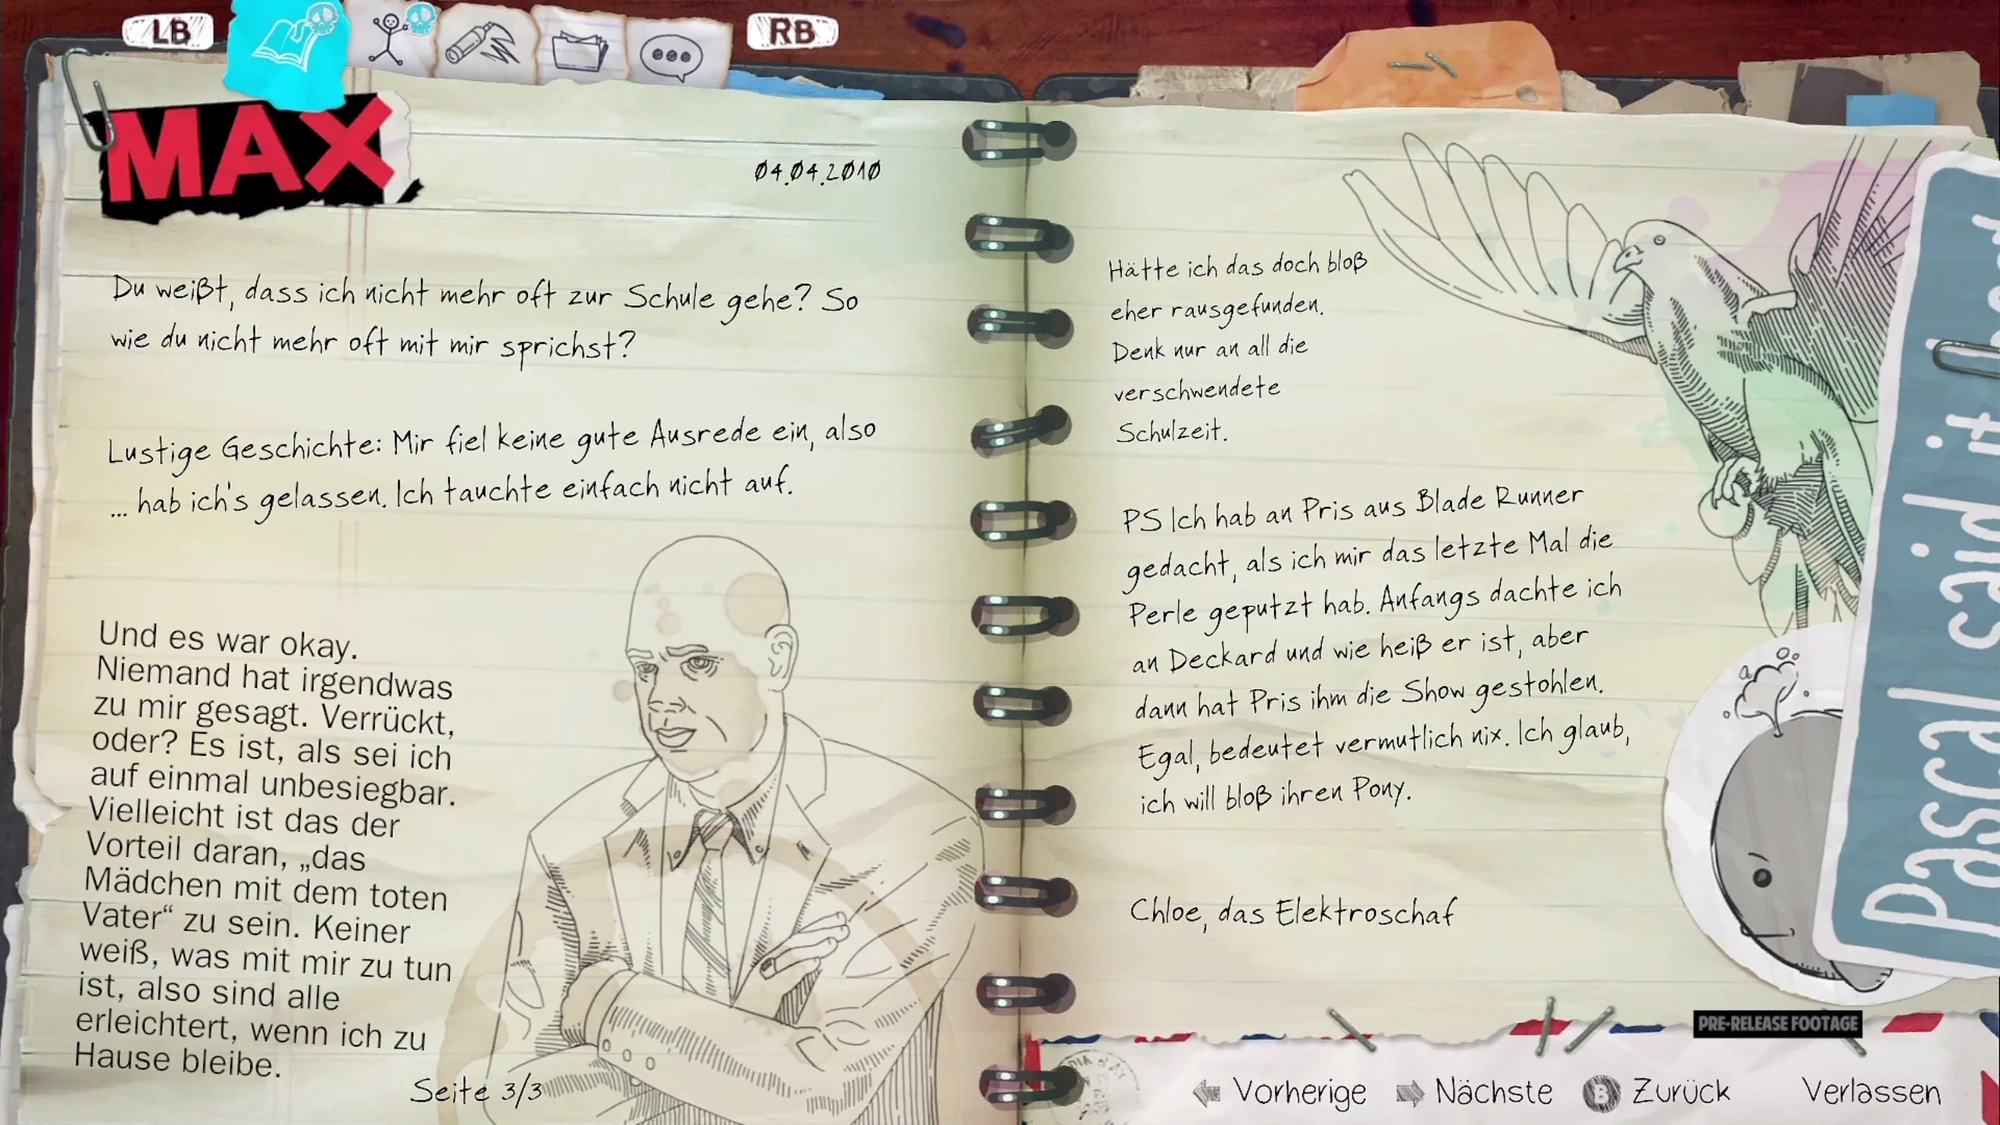 LB
RB
MAX
04.04.2010
Du weißt, dass ich nicht mehr oft zur Schule gehe? So
wie du nicht mehr oft mit mir sprichst?
Lustige Geschichte: Mir fiel keine gute Ausrede ein, also
... hab ich's gelassen. Ich tauchte einfach nicht auf.
Und es war okay.
Niemand hat irgendwas
zu mir gesagt. Verrückt,
oder? Es ist, als sei ich
auf einmal unbesiegbar.
Vielleicht ist das der
Vorteil daran, „das
Mädchen mit dem toten
Vater“ zu sein. Keiner
weiß, was mit mir zu tun
ist, also sind alle
erleichtert, wenn ich zu
Hause bleibe.
Seite 3/3
Hätte ich das doch bloß
eher rausgefunden.
Denk nur an all die
verschwendete
Schulzeit.
PS Ich hab an Pris aus Blade Runner
gedacht, als ich mir das letzte Mal die
Perle geputzt hab. Anfangs dachte ich
an Deckard und wie heiß er ist, aber
dann hat Pris ihm die Show gestohlen.
Egal, bedeutet vermutlich nix. Ich glaub,
ich will bloß ihren Pony.
Chloe, das Elektroschaf
Pascal said it
PRE-RELEASE FOOTAGE
Vorherige
Nächste
B Zurück
Verlassen